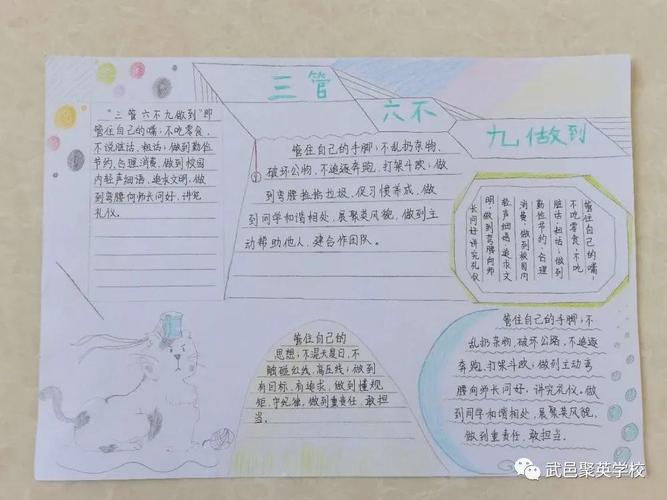 三管
六不
九做到
"三管六不九做到"即
管住自己的嘴;不吃零食,
不说脏话、粗话;做到勤俭
节约、合理消费,做到校园
内轻声细语、追求文明,做
到弯腰向师长问好,讲究
礼仪。
管住自己的手脚;不乱扔杂物、
破坏公物,不追逐奔跑、打架斗欧;做
到弯腰捡拾垃圾、促习惯养成,做
到同学和谐相处、展聚英风貌,做到主
动帮助他人、建合作团队。
管住自己的嘴;
不吃零食,不说
脏话、粗话;做到
勤俭节约、合理
消费,做到校园内
轻声细语、追求文
明,做到弯腰向师
长问好讲究礼仪
管住自己的
思想;不混天度日,不
触碰红线、高压线;做到
有目标、有追求,做到懂规
矩、守纪律,做到重责任、敢担
当。
管住自己的手脚;不
乱扔杂物、破坏公路,不追逐
奔跑、打架斗欧;做到主动弯
腰向师长问好,讲究礼仪,做
到同学和谐相处、展聚英风貌,
做到重责任、敢担当。
武邑聚英学校